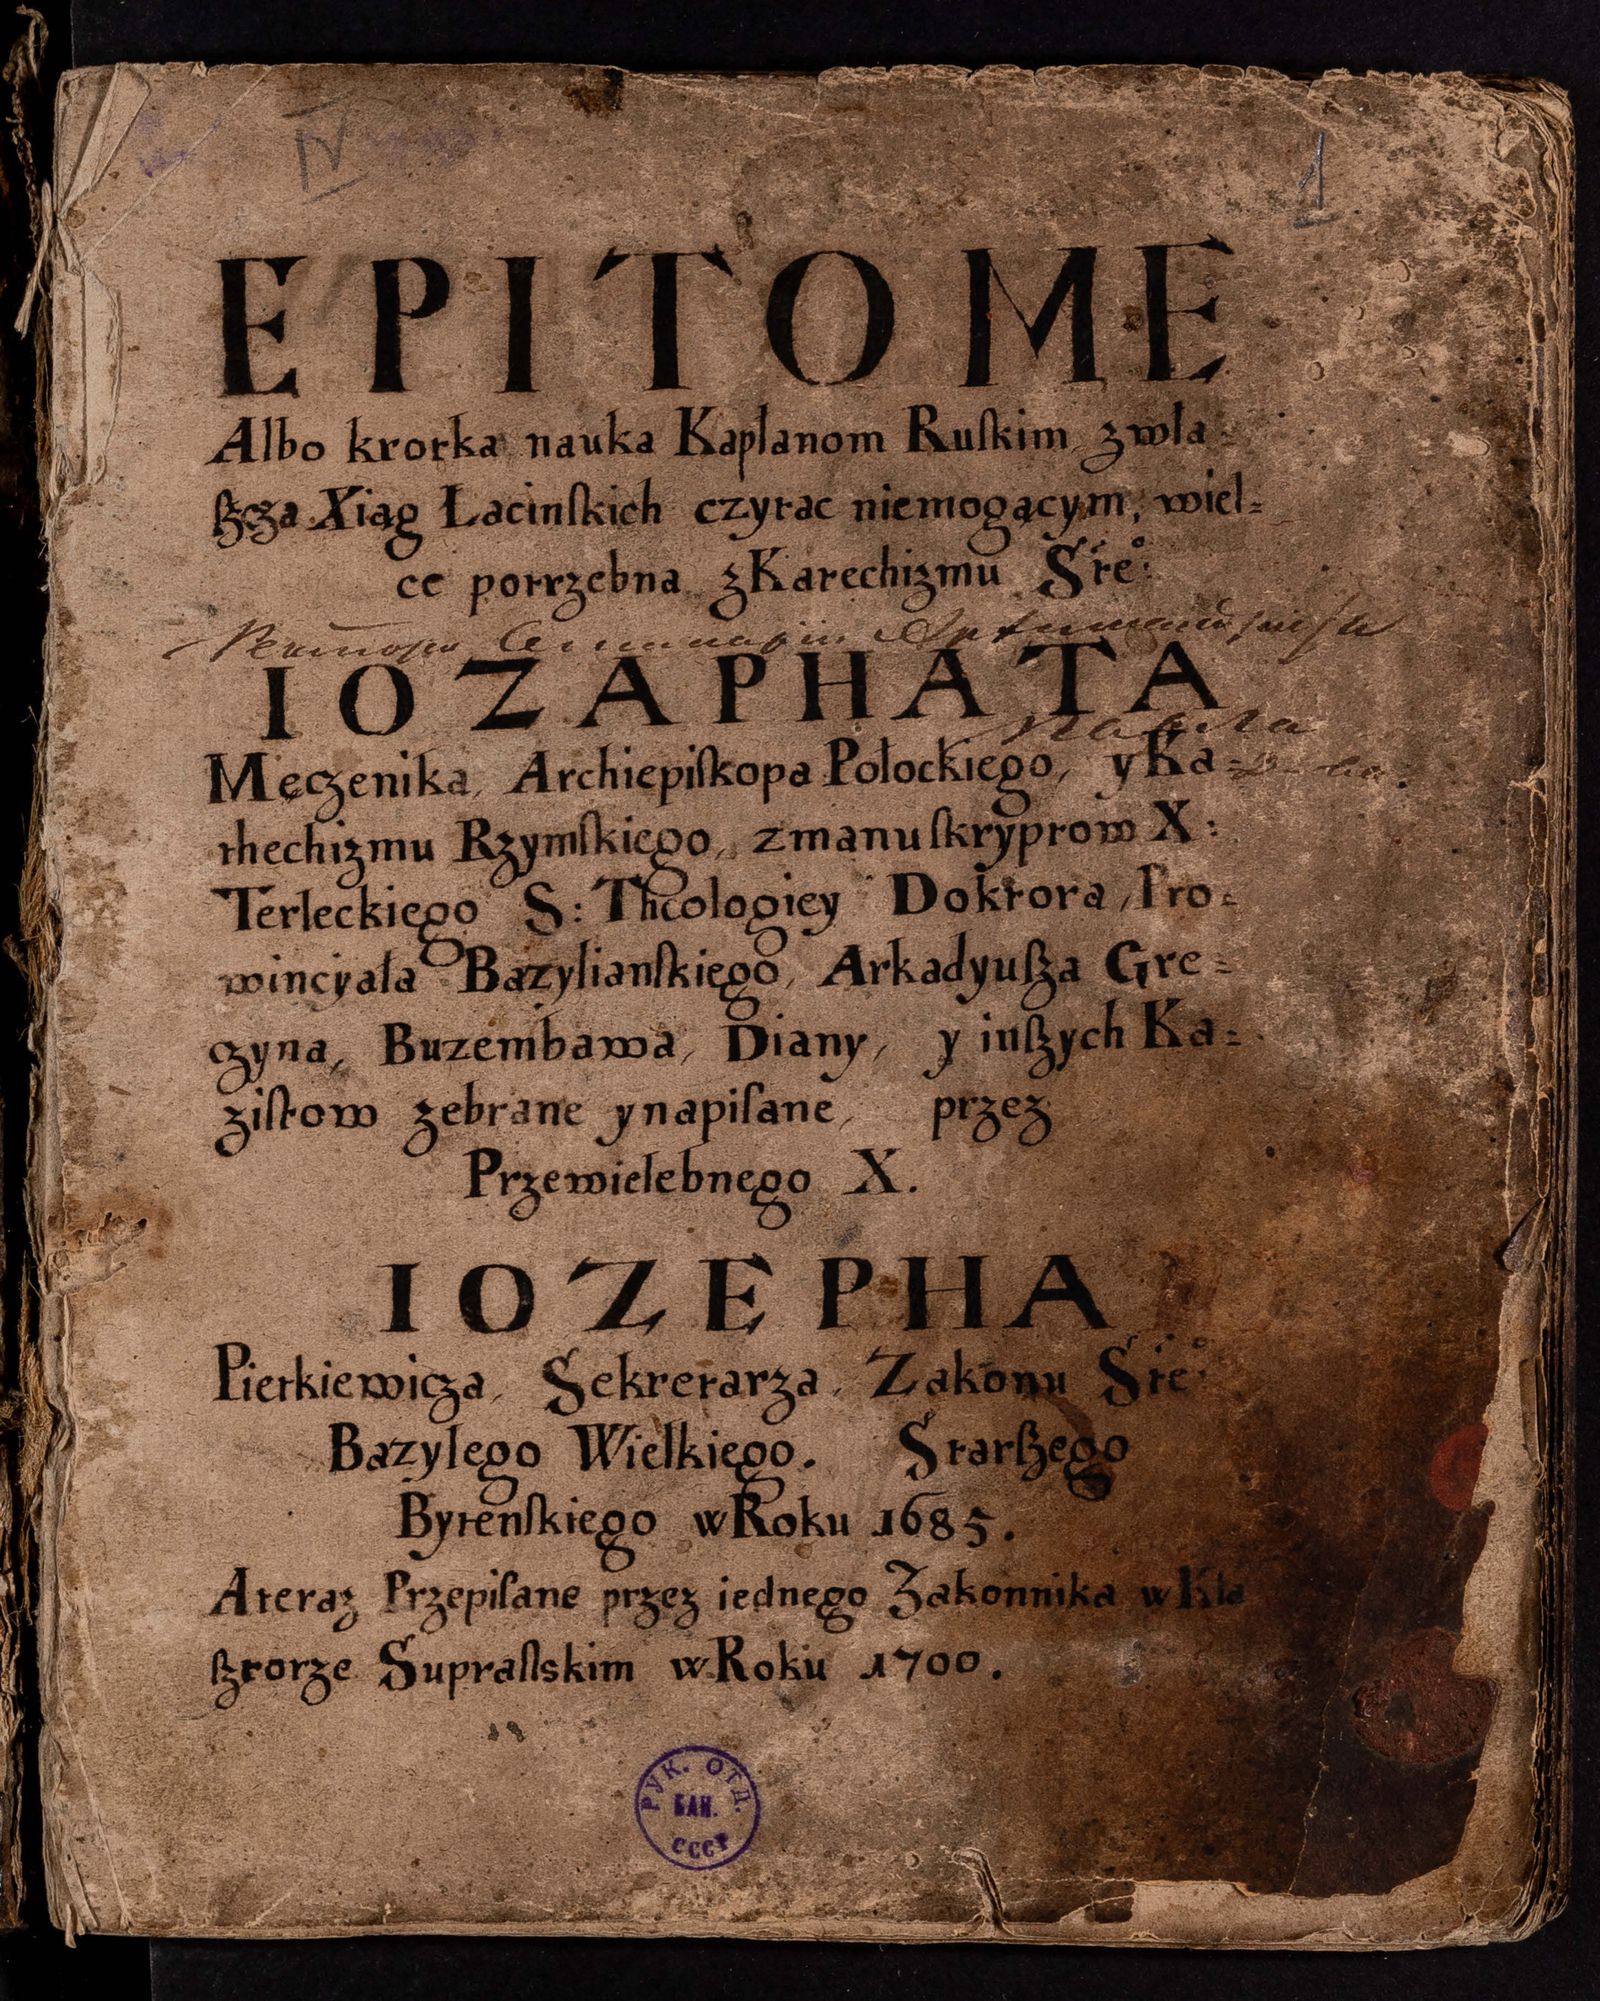 IV
1
EPITOME
Albo krotka nauka Kapłanom Ruſkim, zwła=
ſzcza Xiąg Łacinſkich czytac niemogącym, wiel=
ce potrzebna zKatechizmu Sᵗᵉ°:
IOZAPHATA
Męczenika, Archiepiſkopa Połockiego, yKa=
thechizmu Rzymſkiego, zmanuſkryptow X:
Terleckiego S: Theologiey Doktora, Pro=
wincyała Bazylianſkiego, Arkadyuſza Gre=
czyna, Buzembawa, Diany, y inſzych Ka=
ziſtow zebrane ynapiſane, przez
Przewielebnego X.
IOZEPHA
Pietkiewicza, Sekretarza, Zakonu Sᵗᵉ°:
Bazylego Wielkiego. Starſzego
Bytenſkiego wRoku 1685.
Ateraz Przepiſane przez iednego Zakonnika wKla
ſztorze Supraſlskim wRoku 1700.
РУК. ОТД.
БАН.
СССР